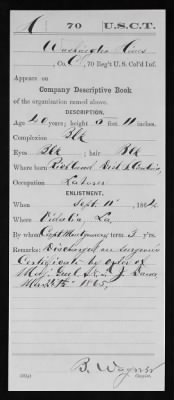 70 U.S.C.T.
Washington
, Co. C, 70 Reg't U.S. Col'd Inf.
Appears on
Company Descriptive Book
of the organization named above.
DESCRIPTION.
Age years; height 5 feet 11 inches.
Complexion Blk
Eyes Blk ; hair Blk
Where born Richland Dist S Carolina,
Occupation Laborer
ENLISTMENT.
When Sept 11, 186
Where Vidalia, La
By whom Capt Montgomery term 3 y'rs.
Remarks: Discharged on Surgeons
Certificate by order of
Maj. Genl
1865,
B. Wagner
Copyist.